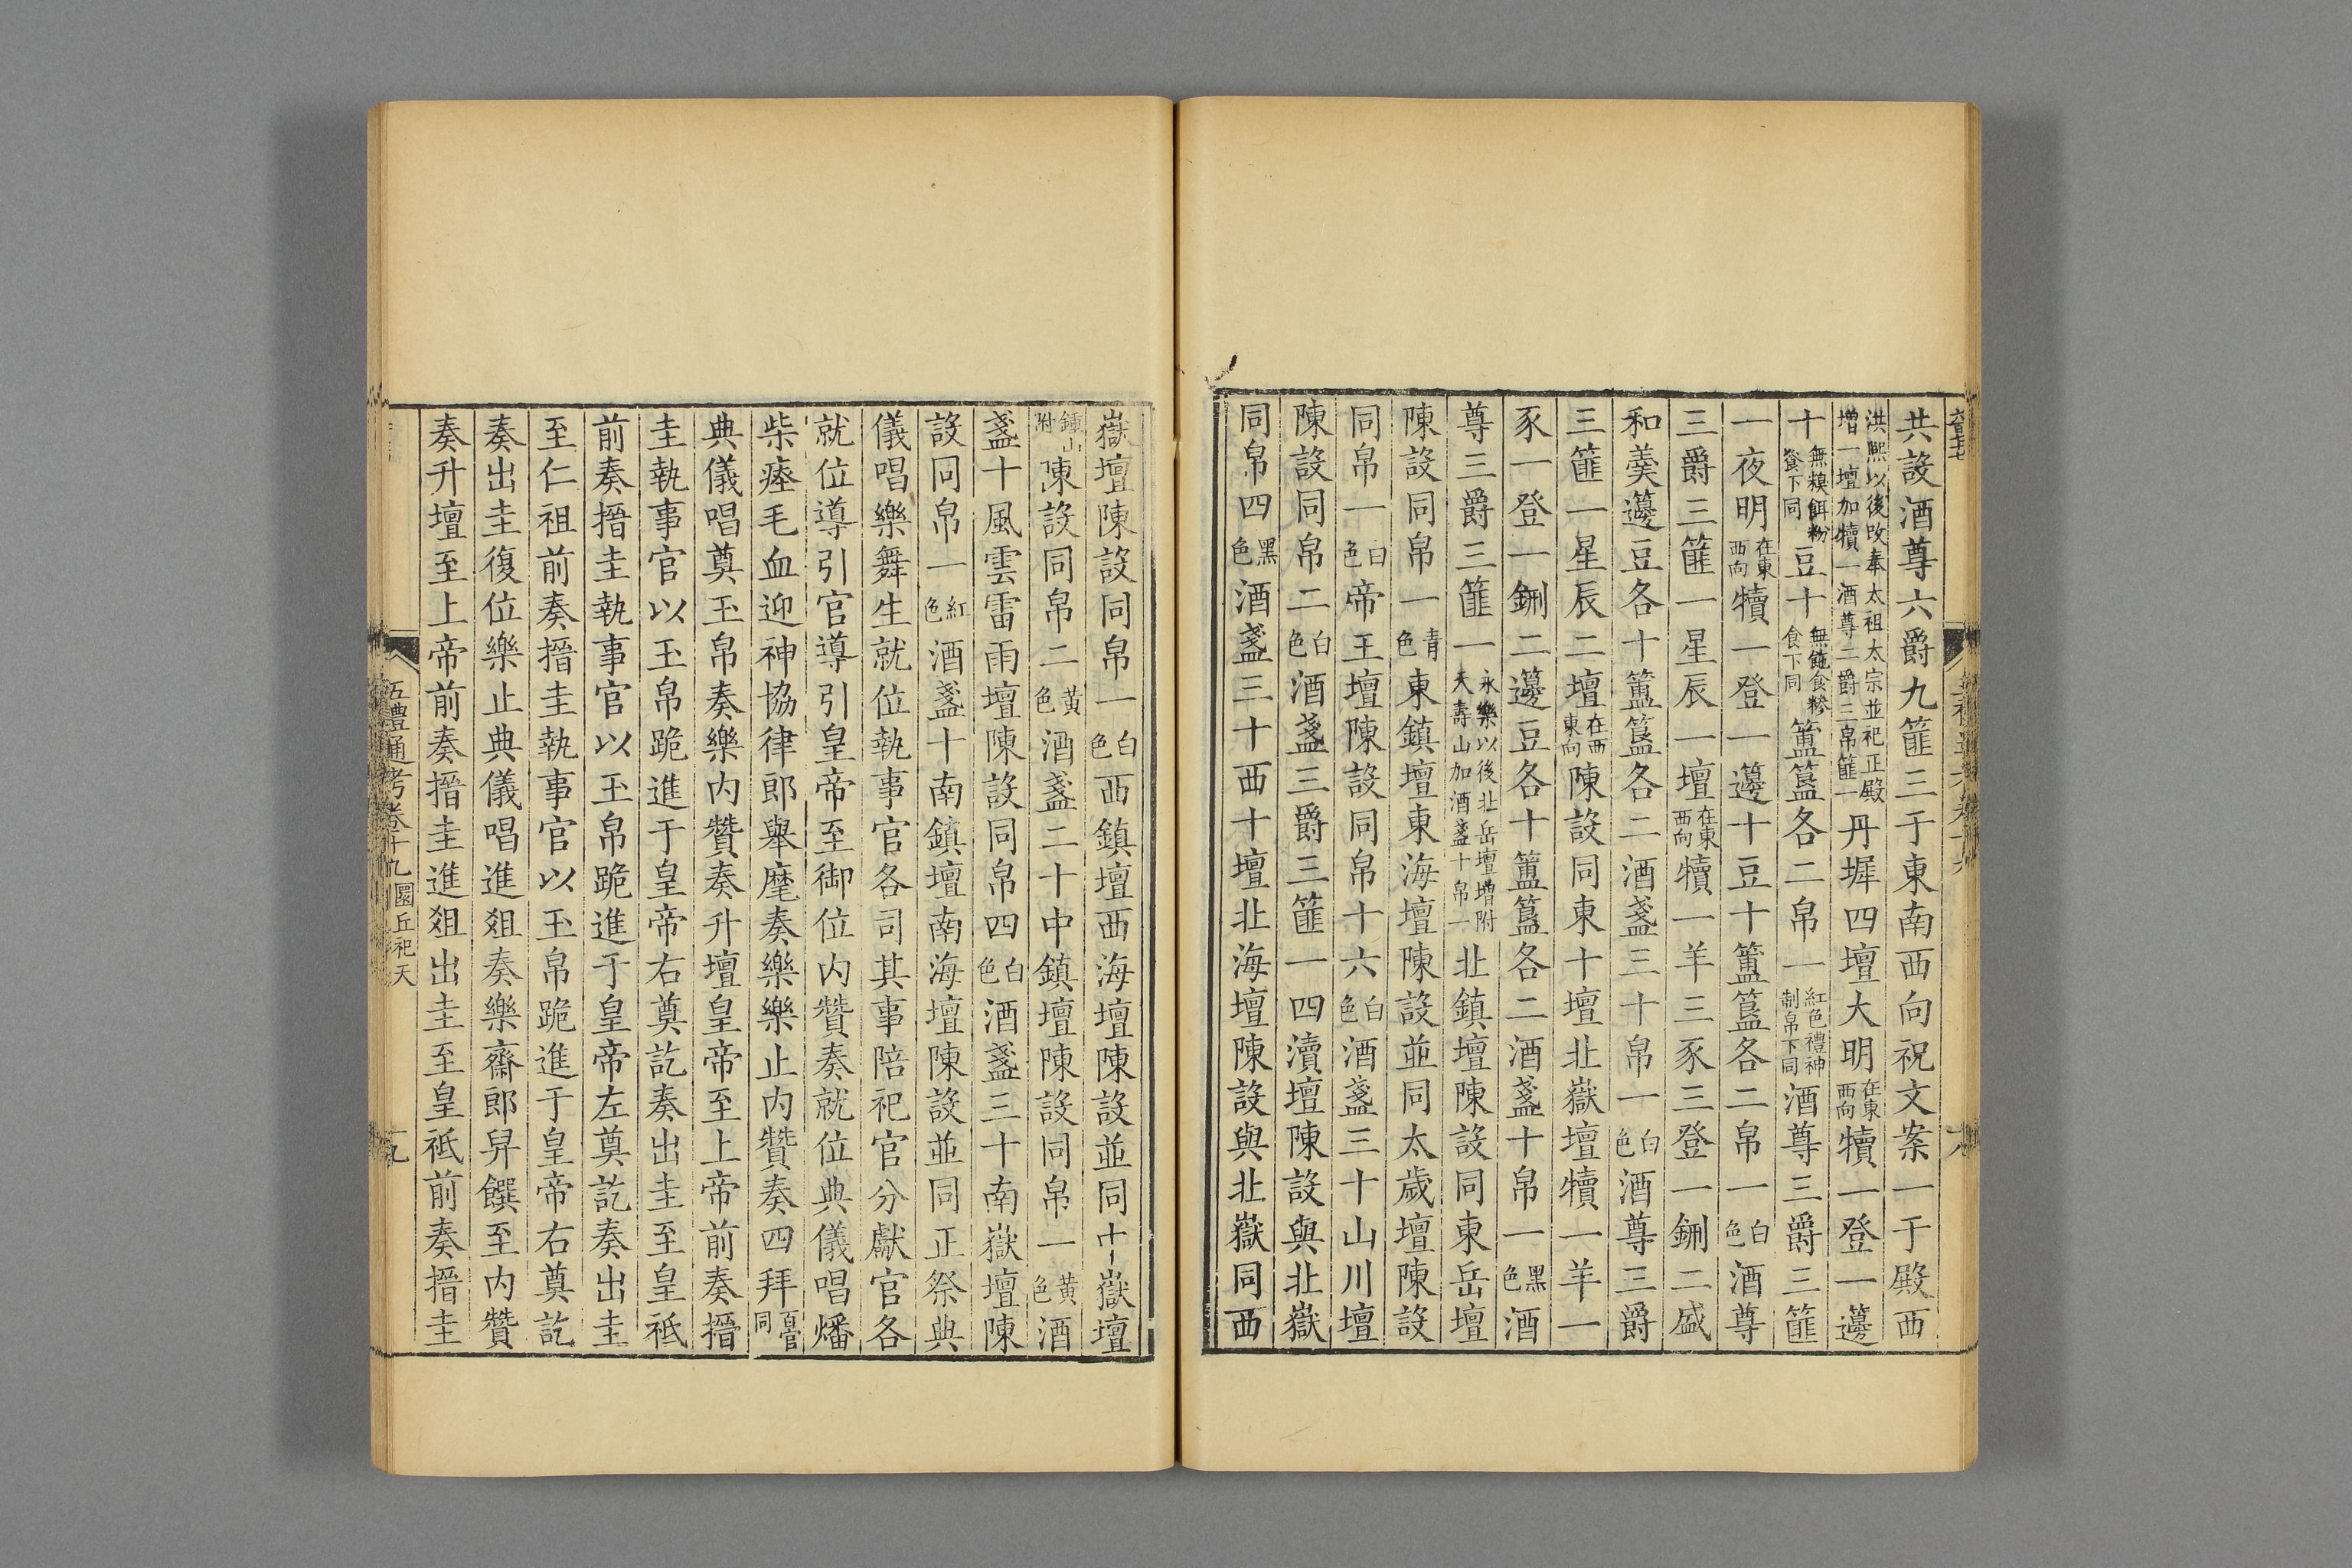 共設酒尊六爵九篚三于東南西向祝文案一于殿西
洪熙以後改奉太祖太宗並祀正殿增一壇加犢一酒尊二爵三帛篚一丹墀四壇大明在東西向犢一登一籩
十無糗餌粉餈下同豆十無酏食糝食下同簠簋各二帛一紅色禮神制帛下同酒尊三爵三篚
一夜明在東西向犢一登一籩十豆十簠簋各二帛一白色酒尊
三爵三篚一星辰一壇在東西向犢一羊三豕三登一鉶二盛
和羹籩豆各十簠簋各二酒盞三十帛一白色酒尊三爵
三篚一星辰二壇在西東向陳設同東十壇北嶽壇犢一羊一
豕一登一鉶二籩豆各十簠簋各二酒盞十帛一黑色酒
尊三爵三篚一永樂以後北岳壇增附天壽山加酒盞十帛一北鎮壇陳設同東岳壇
陳設同帛一青色東鎮壇東海壇陳設並同太歲壇陳設
同帛一白色帝王壇陳設同帛十六白色酒盞三十山川壇
陳設同帛二白色酒盞三爵三篚一四瀆壇陳設與北嶽
同帛四黑色酒盞三十西十壇北海壇陳設與北嶽同西
嶽壇陳設同帛一白色西鎮壇西海壇陳設並同中嶽壇
鍾山附陳設同帛二黃色酒盞二十中鎮壇陳設同帛一黃色酒
盞十風雲雷雨壇陳設同帛四白色酒盞三十南嶽壇陳
設同帛一紅色酒盞十南鎮壇南海壇陳設並同正祭典
儀唱樂舞生就位執事官各司其事陪祀官分獻官各
就位導引官導引皇帝至御位内贊奏就位典儀唱燔
柴瘞毛血迎神協律郎舉麾奏樂樂止内贊奏四拜百官同
典儀唱奠玉帛奏樂内贊奏升壇皇帝至上帝前奏搢
圭執事官以玉帛跪進于皇帝右奠訖奏出圭至皇祗
前奏搢圭執事官以玉帛跪進于皇帝左奠訖奏出圭
至仁祖前奏搢圭執事官以玉帛跪進于皇帝右奠訖
奏出圭復位樂止典儀唱進俎奏樂齋郎舁饌至内贊
奏升壇至上帝前奏搢圭進俎出圭至皇祗前奏搢圭
五禮通考卷十九圜丘祀天
十九